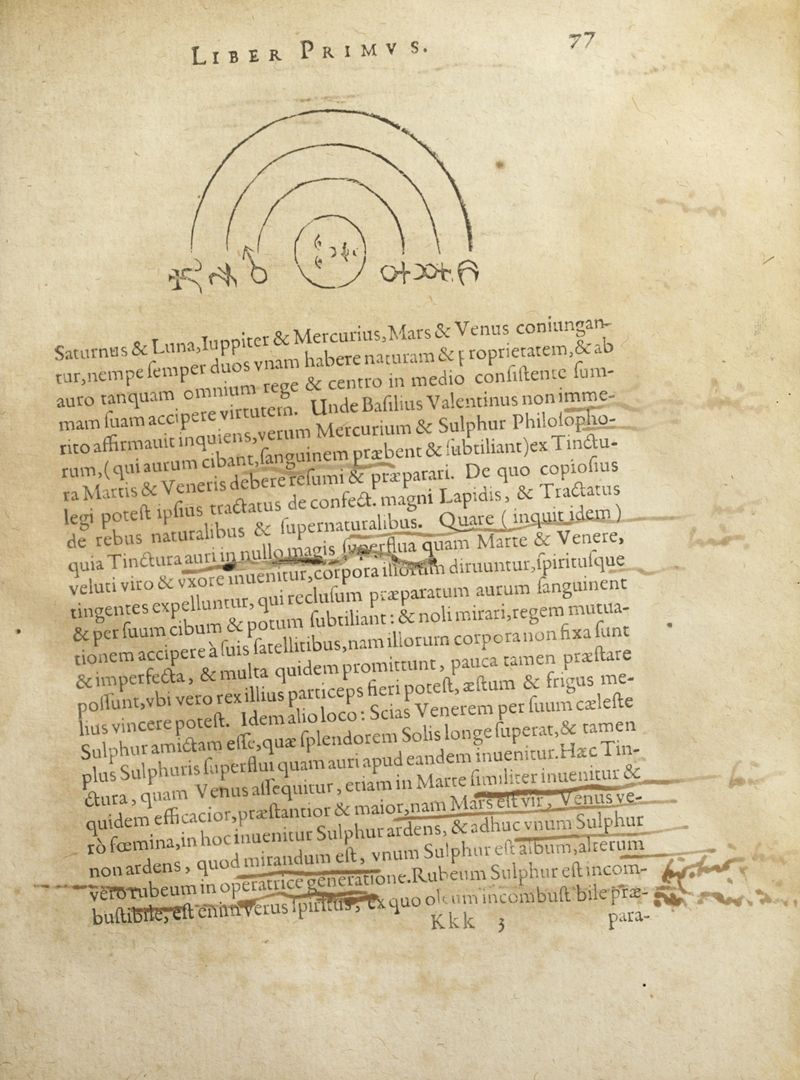 LIBER PRIMVS. 77
Saturnus & Luna, Iuppiter & Mercurius, Mars & Venus coniungan-
tur, nempe semper duos vnam habere naturam & proprietatem, & ab
auro tanquam omnium rege & centro in medio consistente sum-
mam suam accipere virtutem. Unde Basilius Valentinus non imme-
rito affirmauit inquiens, verum Mercurium & Sulphur Philosopho-
rum, (qui aurum cibant, sanguinem præbent & subtiliant) ex Tinctu-
ra Martis & Veneris debere resumi & præparari. De quo copiosius
legi potest ipsius tractatus de confect. magni Lapidis, & Tractatus
de rebus naturalibus & supernaturalibus. Quare (inquit idem)
quia Tinctura auri in nullo magis superflua quam Marte & Venere,
veluti viro & vxore inuenitur, corpora illorum diruuntur, spiritusque
tingentes expelluntur, qui reclusum præparatum aurum sanguinent
& per suum cibum & potum subtiliant: & noli mirari, regem mutua-
tionem accipere à suis satellitibus, nam illorum corpora non fixa sunt
& imperfecta, & multa quidem promittunt, pauca tamen præstare
possunt, vbi vero rex illius particeps fieri potest, æstum & frigus me-
lius vincere potest. Idem alio loco: Scias Venerem per suum cæleste
Sulphur amictam esse, quæ splendorem Solis longe superat, & tamen
plus Sulphuris superflui quam auri apud eandem inuenitur. Hæc Tin-
ctura, quam Venus assequitur, etiam in Marte similiter inuenitur &
quidem efficacior, præstantior & maior, nam Mars est vir, Venus ve-
rò fœmina, in hoc inuenitur Sulphur ardens, & adhuc vnum Sulphur
non ardens, quod mirandum est, vnum Sulphur est album, alterum
vero rubeum in operatrice generatione. Rubeum Sulphur est incom-
bustibile, est enim verus spiritus, ex quo oleum incombustibile præ-
Kkk 3 para-